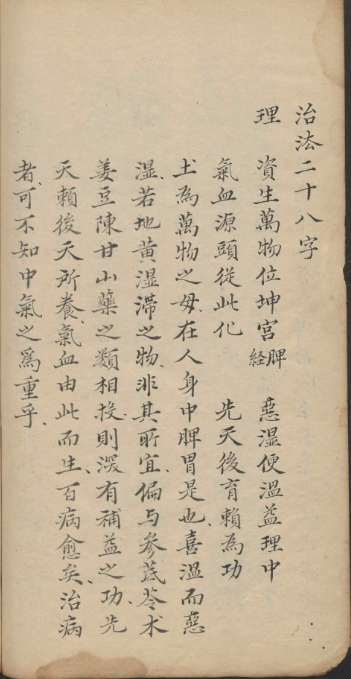 治法二十八字
理　資生萬物位坤宮脾經　惡湿便溫益理中
氣血源頭從此化　先天後育賴為功
土為萬物之母、在人身中脾胃是也、喜溫而惡
湿、若地黃湿滞之物、非其所宜、偏与参芪苓术
姜豆陳甘山藥之類相投、則深有補益之功、先
天賴後天所養、氣血由此而生、百病愈矣、治病
者、可不知中氣之爲重乎、